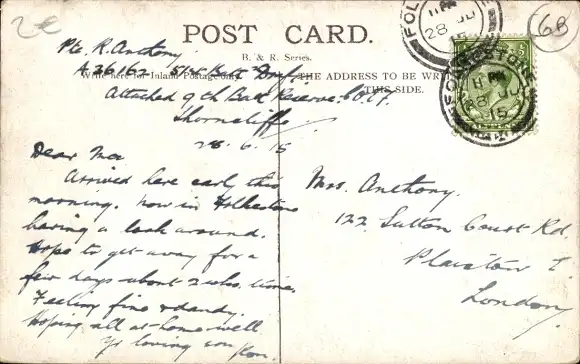 POST CARD.
B. & R. Series.
Write here for Inland Postage only.
THE ADDRESS TO BE
THIS SIDE.
FOLKESTONE
11 PM
28 JU
15
6B
Pte. R. Anthony
A36162 51st Batt
Attached 9th Batt Reserve
Shorncliffe
28.6.15
Dear Ma
Arrived here early this
morning. now in Folkestone
having a look around.
Hope to get away for a
few days about 2 wks. time.
Feeling fine & dandy.
Hoping all at home well
Yr loving son
Ron.
Mrs. Anthony.
122 Sutton Court Rd.
Plaistow E.
London